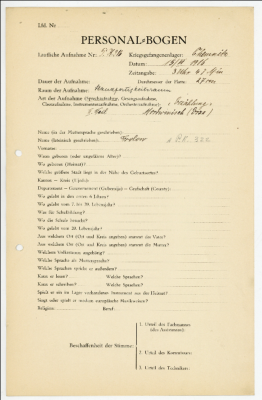 Ltf. Nr.
PERSONAL-BOGEN
Lautliche Aufnahme Nr.: Kriegsgefangenenlager:
Datum:
Zeitangabe:
Dauer der Aufnahme: Durchmesser der Platte: 27 cm
Raum der Aufnahme:
Art der Aufnahme (Sprechaufnahme, Gesangsaufnahme,
Choraufnahme, Instrumentenaufnahme, Orchesteraufnahme): Erzählung,
Name (in der Muttersprache geschrieben):
Name (lateinisch geschrieben):
Vorname:
Wann geboren (oder ungefähres Alter)?
Wo geboren (Heimat)?
Welche größere Stadt liegt in der Nähe des Geburtsortes?
Kanton — Kreis (Ujedz):
Departement — Gouvernement (Gubernija) — Grafschaft (County):
Wo gelebt in den ersten 6 Jahren?
Wo gelebt vom 7. bis 20. Lebensjahr?
Was für Schulbildung?
Wo die Schule besucht?
Wo gelebt vom 20. Lebensjahr?
Aus welchem Ort (Ort und Kreis angeben) stammt der Vater?
Aus welchem Ort (Ort und Kreis angeben) stammt die Mutter?
Welchem Volksstamm angehörig?
Welche Sprache als Muttersprache?
Welche Sprachen spricht er außerdem?
Kann er lesen? Welche Sprachen?
Kann er schreiben? Welche Sprachen?
Spielt er ein im Lager vorhandenes Instrument aus der Heimat?
Singt oder spielt er modern europäische Musikweisen?
Religion: Beruf:
Beschaffenheit der Stimme:
1. Urteil des Fachmannes
(des Assistenten):
2. Urteil des Kommissars:
3. Urteil des Technikers: